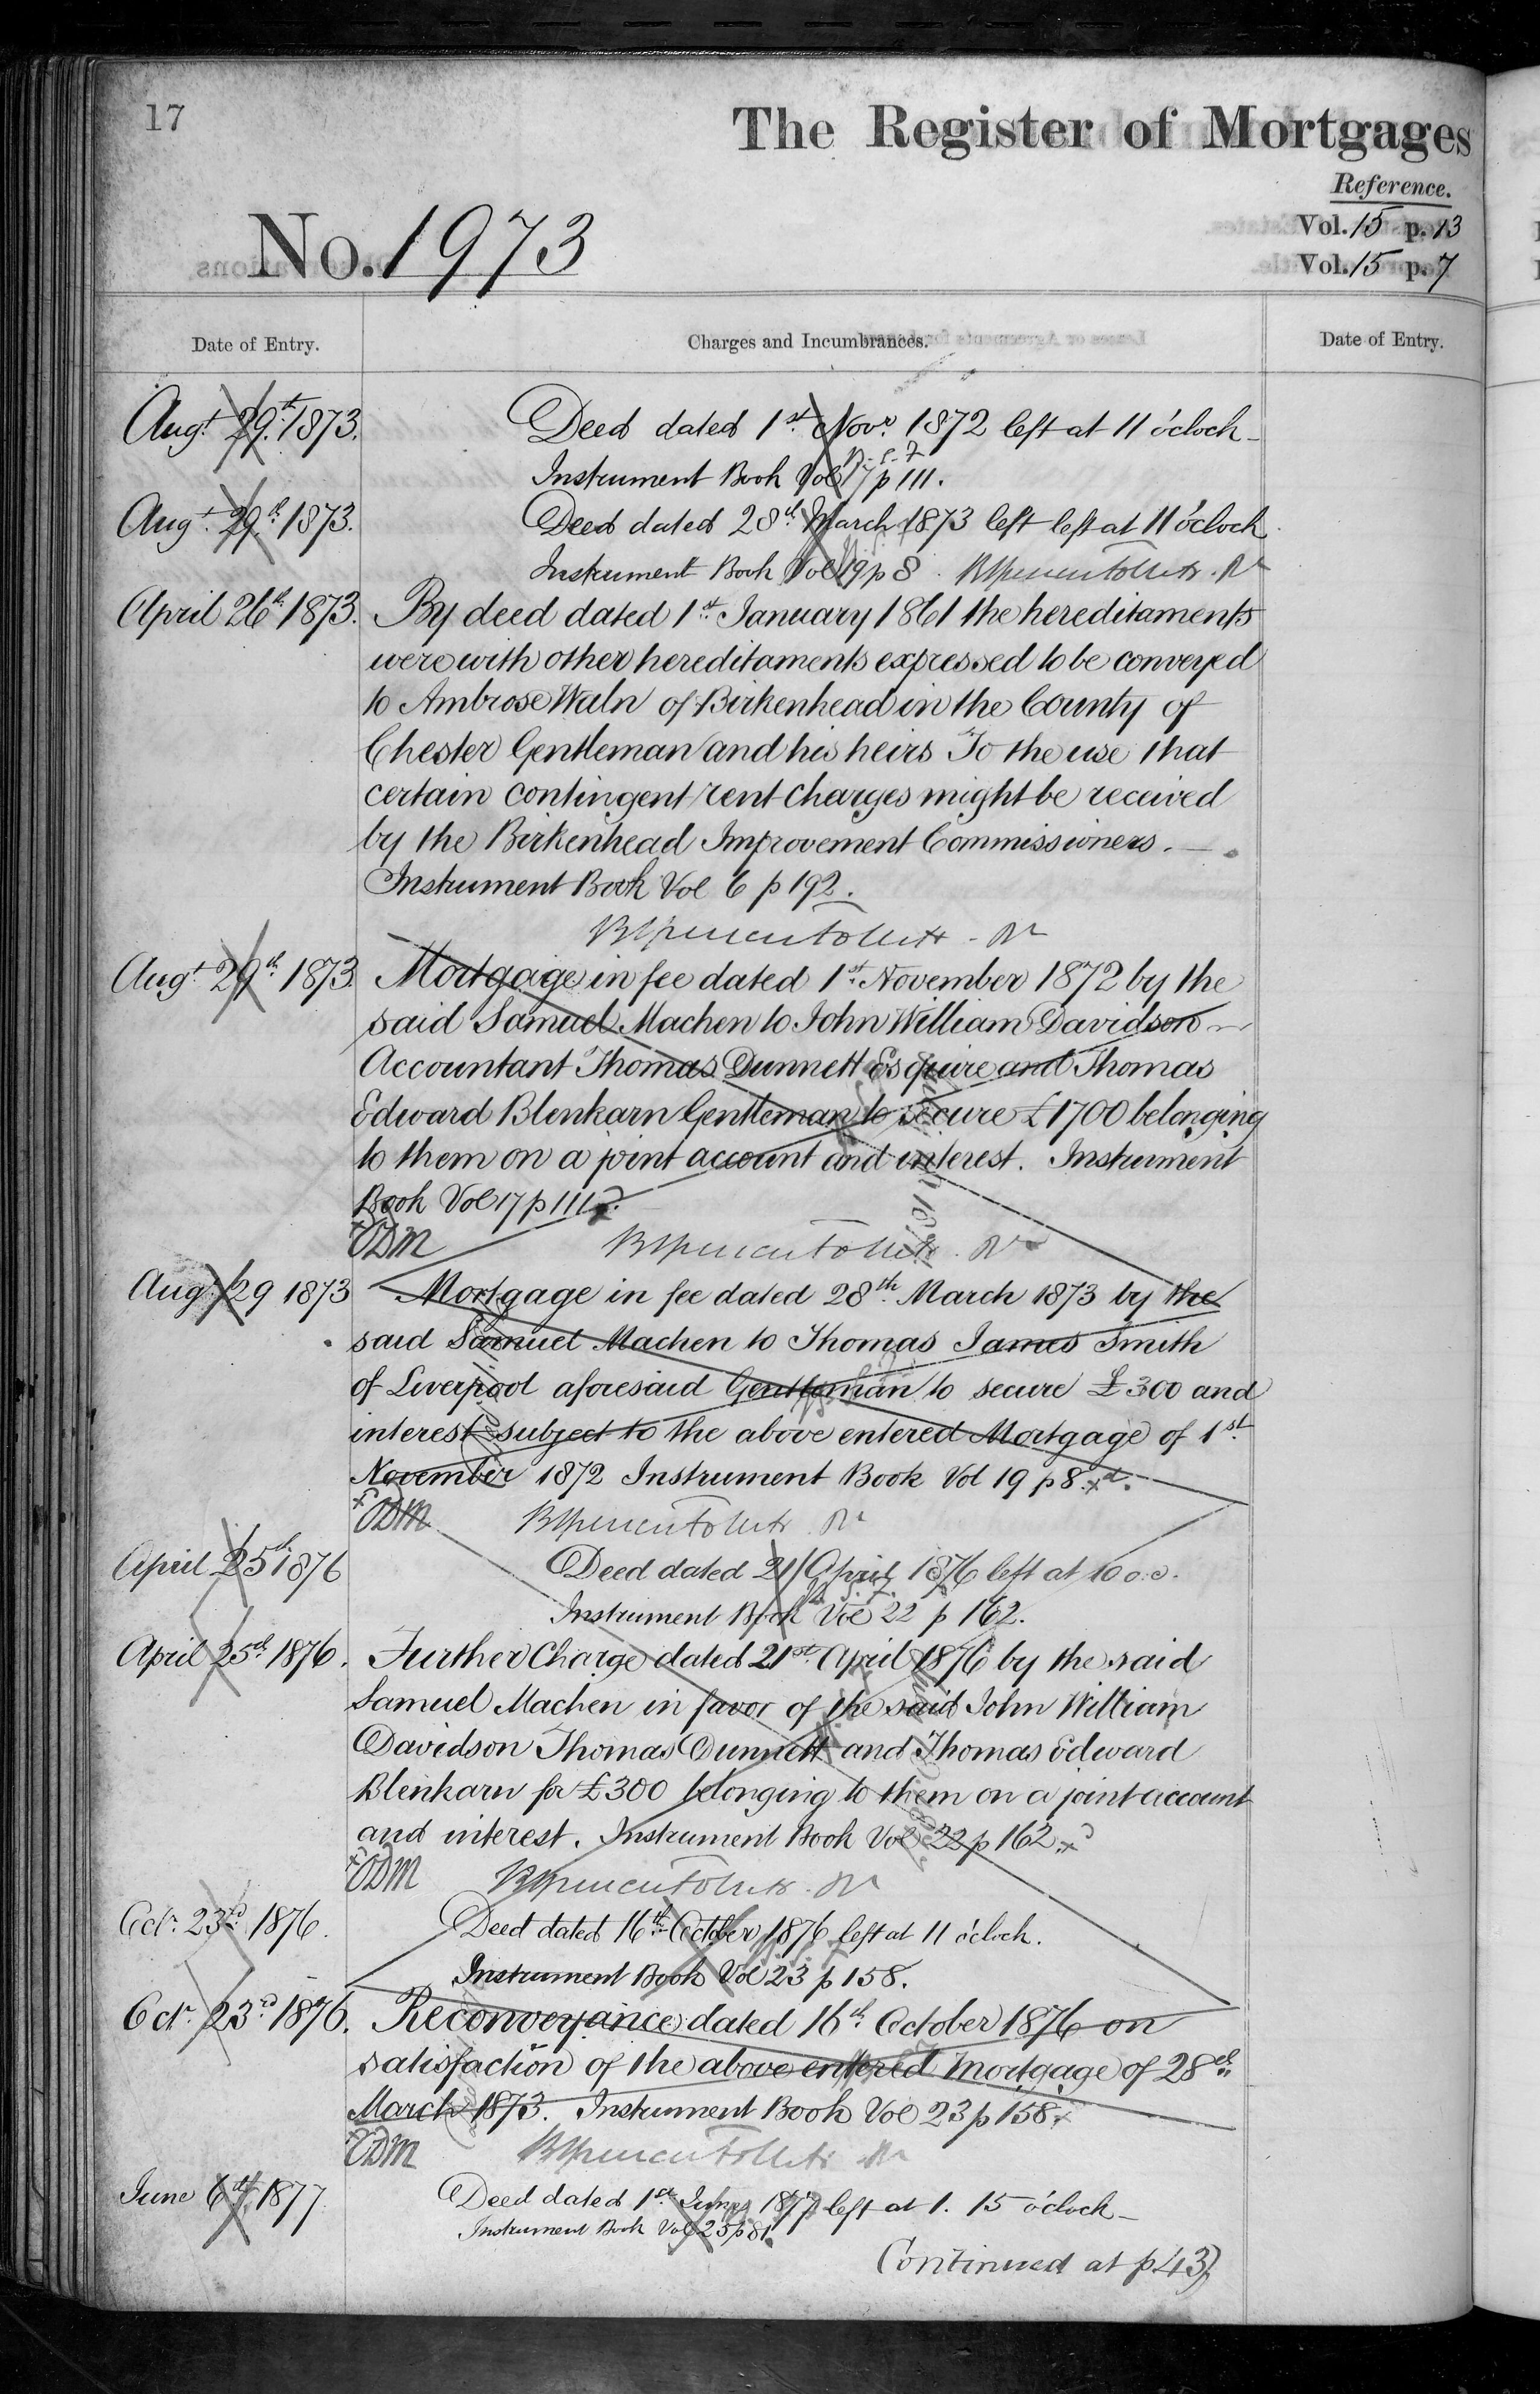 17
The Register of Mortgages
Reference.
No. 1973
Vol. 15 p. 13
Vol. 15 p. 7
Date of Entry.
Charges and Incumbrances.
Date of Entry.
Augt. 29th. 1873.
Deed dated 1st. Novr. 1872 left at 11 o'clock
Instrument Book Vol 17 p 111.
Augt. 29th. 1873.
Deed dated 28th. March 1873 left left at 11 o'clock
Instrument Book Vol 19 p 8.
April 26th. 1873.
By deed dated 1st. January 1861 the hereditaments
were with other hereditaments expressed to be conveyed
to Ambrose Waln of Birkenhead in the County of
Chester Gentleman and his heirs To the use that
certain contingent rent charges might be received
by the Birkenhead Improvement Commissioners.
Instrument Book Vol 6 p 192.
Augt 29th. 1873.
Mortgage in fee dated 1st. November 1872 by the
said Samuel Machen to John William Davidson
Accountant Thomas Dunnett Esquire and Thomas
Edward Blenkarn Gentleman to secure £1700 belonging
to them on a joint account and interest. Instrument
Book Vol 17 p 111
Augt. 29 1873
Mortgage in fee dated 28th. March 1873 by the
said Samuel Machen to Thomas James Smith
of Liverpool aforesaid Gentleman to secure £300 and
interest subject to the above entered Mortgage of 1st.
November 1872 Instrument Book Vol 19 p 8.
April 25th 1876
Deed dated 21 April 1876 left at 10 o.c.
Instrument Book Vol 22 p 162.
April 25th. 1876.
Further Charge dated 21st. April 1876 by the said
Samuel Machen in favor of the said John William
Davidson Thomas Dunnett and Thomas Edward
Blenkarn for £300 belonging to them on a joint account
and interest. Instrument Book Vol 22 p 162
Octr. 23rd. 1876.
Deed dated 16th. October 1876 left at 11 o'clock.
Instrument Book Vol 23 p 158.
Octr. 23rd. 1876.
Reconveyance dated 16th. October 1876 on
satisfaction of the above entered Mortgage of 28th.
March 1873. Instrument Book Vol 23 p 158
June 6th. 1877
Deed dated 1st. June 1877 left at 1. 15 o'clock
Instrument Book Vol 25 p 81.
Continued at p 43)